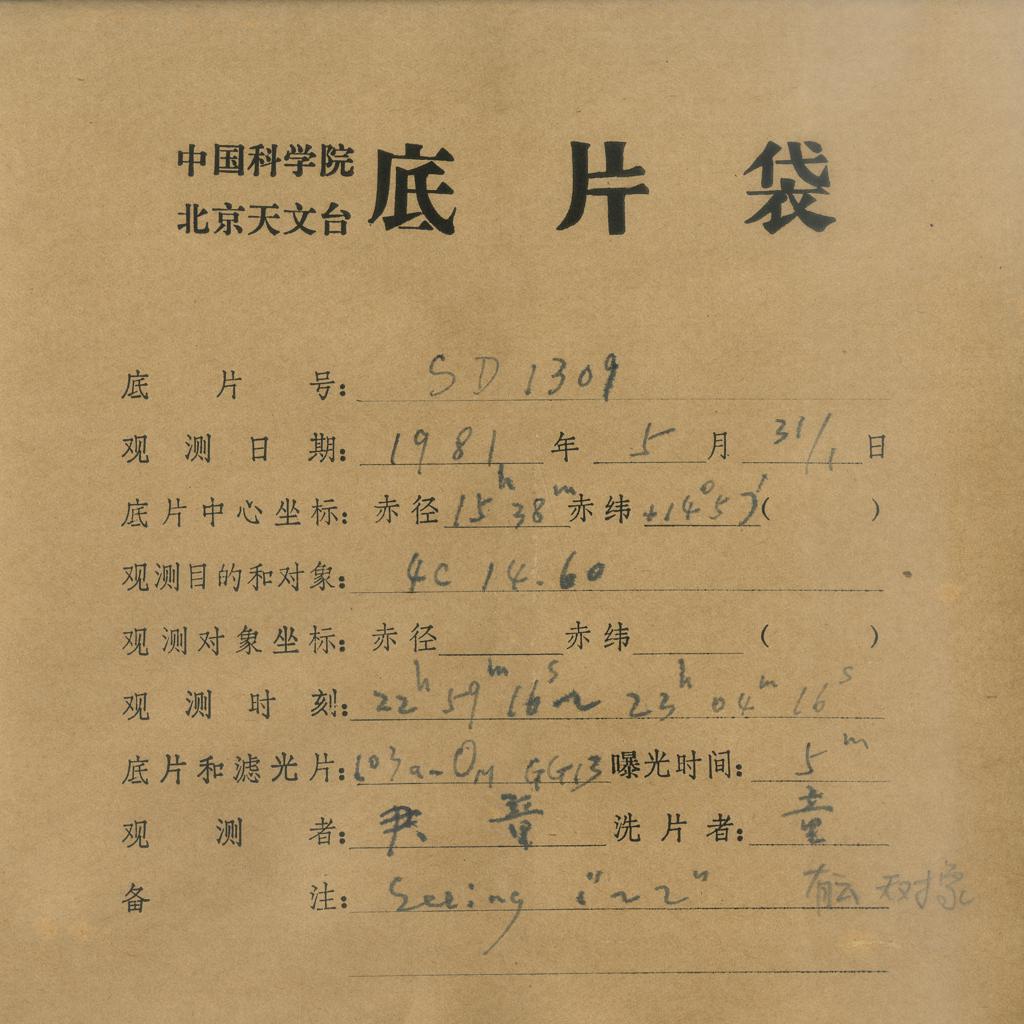 中国科学院
北京天文台
底片袋
底片号: SD 1309
观测日期: 1981年 5月 31/1日
底片中心坐标: 赤径 15h 38m 赤纬 +14°57′ ( )
观测目的和对象: 4C 14.60
观测对象坐标: 赤径 赤纬 ( )
观测时刻: 22h 59m 16s ~ 23h 04m 16s
底片和滤光片: 103a-O GG13 曝光时间: 5m
观测者: 尹 童 洗片者: 童
备注: Seeing 1"~2" 有云 无对象